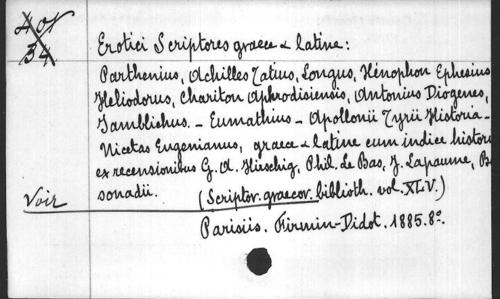 4 of
34
Erotici Scriptores graece & latine:
Parthenius, Achilles Tatius, Longus, Xénophon Ephesius
Heliodorus, Chariton Aphrodisiensis, Antonius Diogenes,
Iamblichus. - Eumathius - Apollonii Tyrii Historia -
Nicetas Eugenianus, graece & latine cum indice histori
ex recensionibus G. A. Hirschig, Phil. Le Bas, J. Lapaume, B
sonadii. (Scriptor. graecor. biblioth. vol. XLV.)
Voir
Parisiis. Firmin-Didot. 1885. 8º.